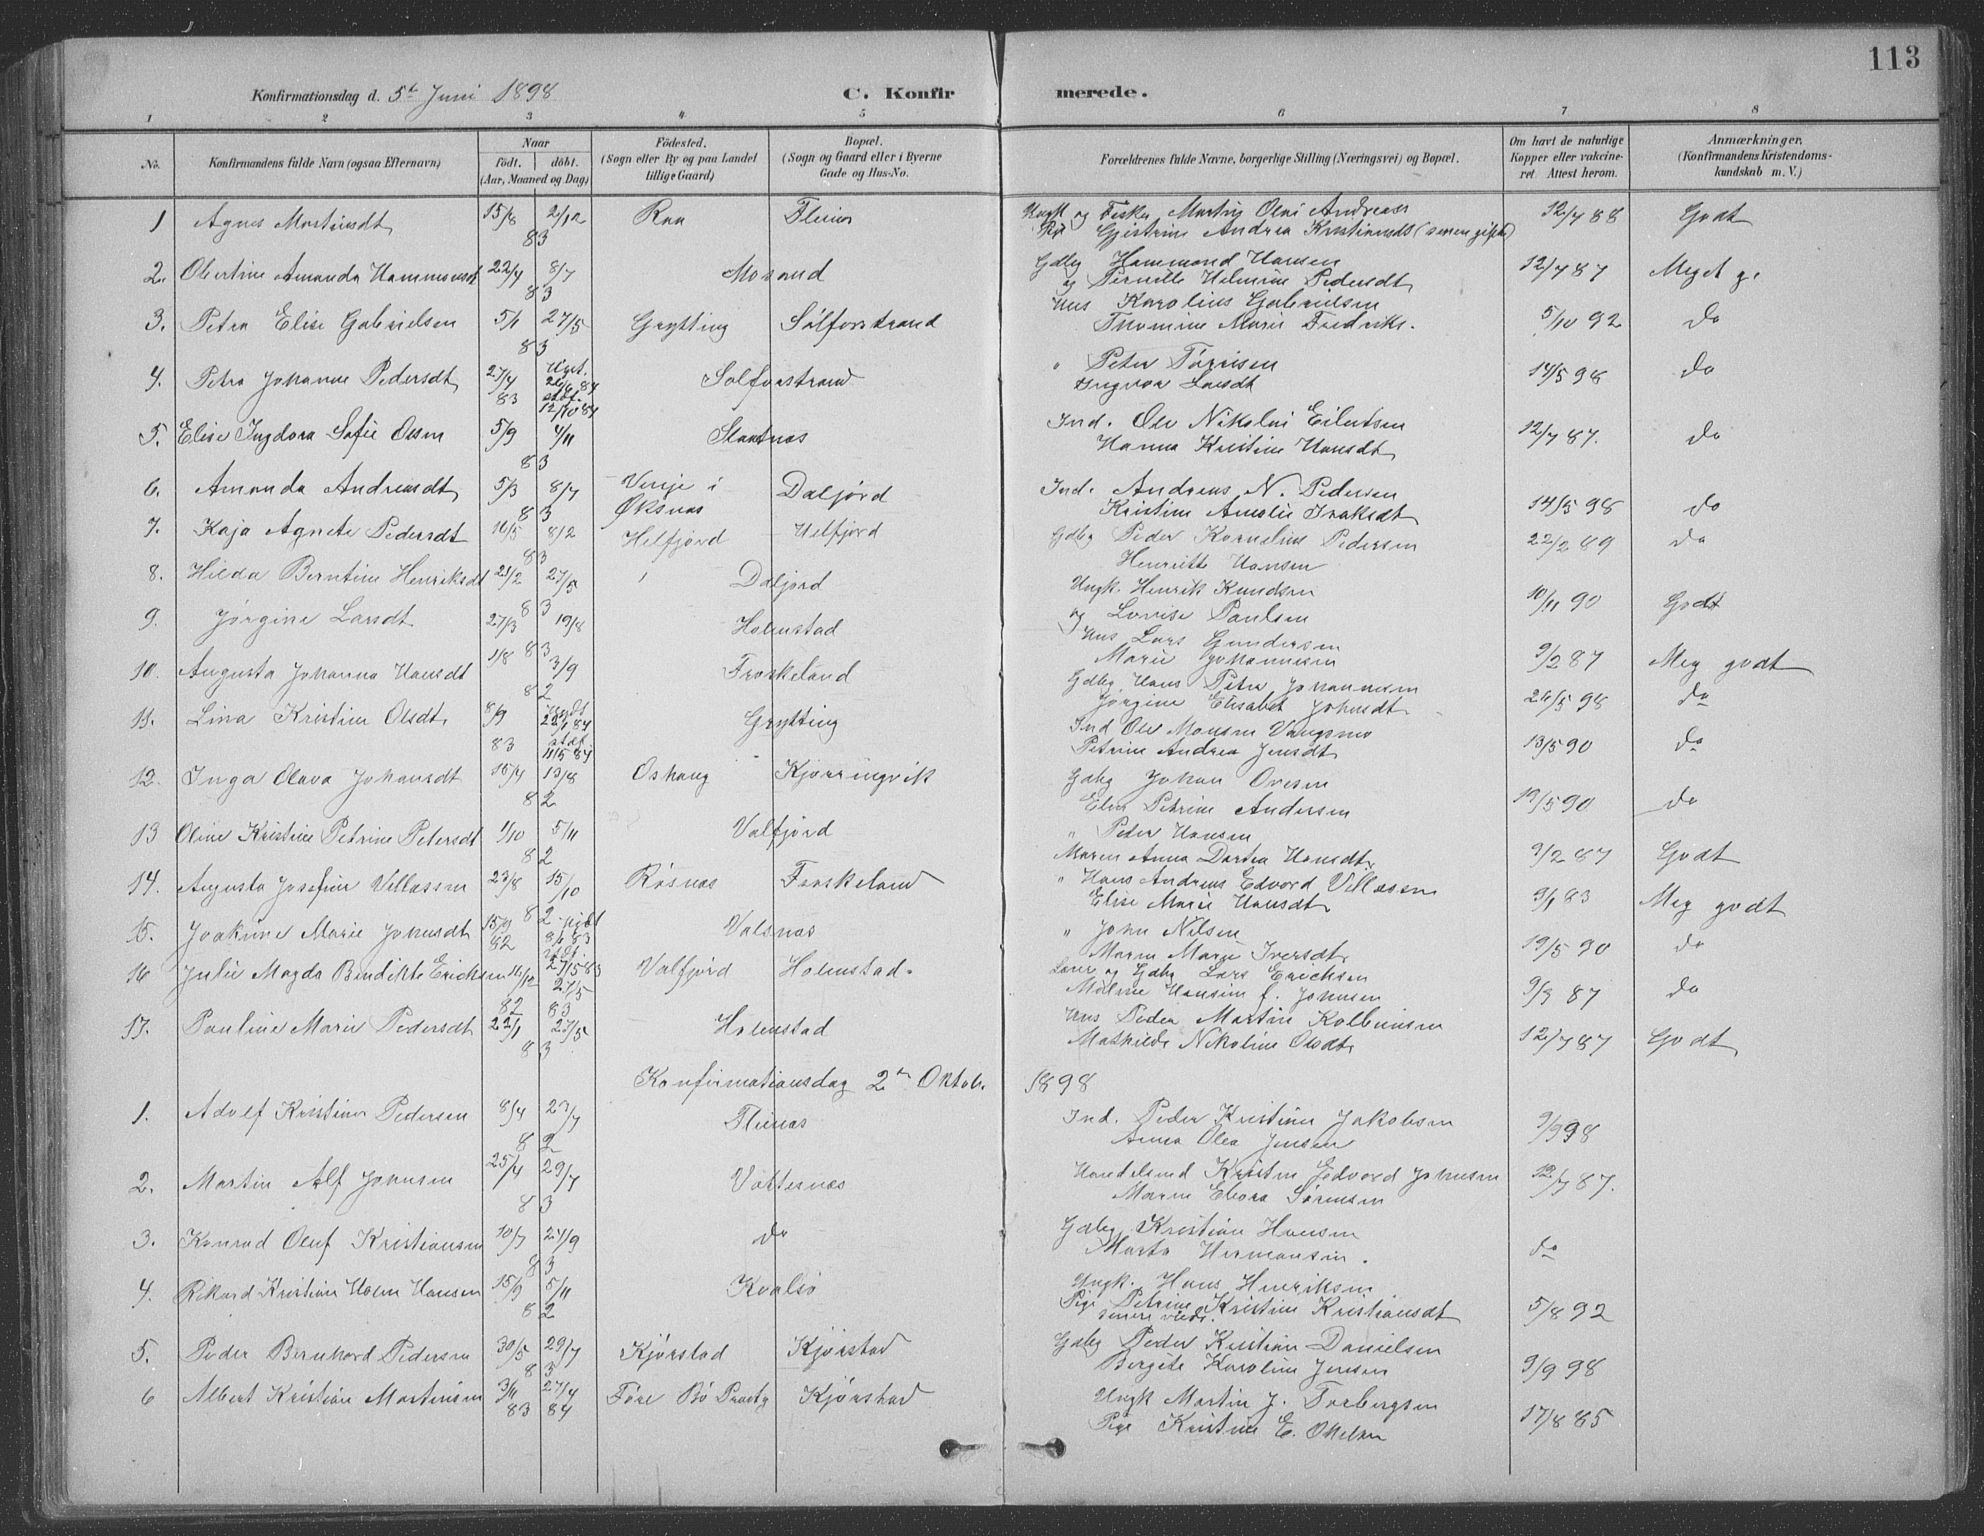 113
Konfirmationsdag d. 5te Juni 1898 C. Konfirmerede.
1 2 3 4 5 6 7 8
No. Konfirmandens fulde Navn (ogsaa Efternavn) Naar födt. döbt. (Aar, Maaned og Dag) Födested. (Sogn eller By og paa Landet tillige Gaard) Bopæl. (Sogn og Gaard eller i Byerne Gade og Hus-No. Forældrenes fulde Navne, borgerlige Stilling (Næringsvei) og Bopæl. Om havt de naturlige Kopper eller vakcineret. Attest herom. Anmærkninger, (Konfirmandens Kristendomskundskab m. V.)
1 Agnes Martinsdt 15/8 2/12 83 Raa Ungk og Fisker Martin Olai Andreas 12/7 88 Godt
Andrea Kristiansdt (senere gift)
2. Obertine Amanda Hammonsdt 22/4 8/7 83 Mosand Gdbg Hammond Hansen 12/7 87 Meget g.
og Pernille Helmine Pedersdt
3. Petra Elise Gabrielsen 5/1 27/5 83 Grytting Sølforstrand Hus Karolius Gabrielsen 5/10 92 do
Thomine Marie Fredriks.
4. Petra Johanne Pedersdt 27/4 83 Hjdt. 26/6 84 stdf. 12/10 84 Solforstrand " Peter Tørrisen 14/5 98 do
Ingvor Larsdt
5. Elise Ingdora Sofie Olsen 5/9 4/11 83 Slaatnas Ind. Ole Nikolai Eilertsen 12/7 87. do
Hanna Kristine Hansdt
6. Amanda Andreasdt 5/3 8/7 83 Vinje i Øksnas Daljord Ind. Andreas N. Pedersen 14/5 98 do
Kristine Amalie Isaksdt
7. Kaja Agnete Pedersdt 16/5 8/2 83 Helfjord Helfjord Gdbg Peder Kornelius Pedersen 22/2 89 do
Henriette Hansen
8. Hilda Berntine Henriksdt 21/2 27/5 83 Daljord Ungk. Henrik Knudsen 10/11 90 Godt
og Lovise Paulsen
9. Jørgine Larsdt 27/3 19/8 83 Holmstad Hus Lars Gundersen 9/2 87 Meg godt
Marie Johannesen
10. Augusta Johanna Hansdt 1/8 3/9 82 Froskeland Gdbg Hans Peter Johannesen 26/5 98 do
Jørgine Elisabet Johnsdt
11. Lina Kristine Olsdt 8/9 83 Hjdt 84 stdf 11/5 84 Grytting Ind Ole Monsen Vangsmo 13/5 90 do
Petrine Andrea Jensdt
12. Inga Olava Johansdt 15/4 13/8 82 Oshaug Kjørringvik Gdbg Johan Ovesen 19/5 90 do
Elen Petrine Andersen
13 Oline Kristine Petrine Petersdt 1/10 5/11 82 Valfjord " Peter Hansen 9/2 87 Godt
Maren Anna Dortea Hansdt
14. Augusta Josefine Villassen 23/8 15/10 82 Røsnas Froskeland " Hans Andreas Edvord Villassen 9/1 83 Meg godt
Elise Marie Hansdt
15. Joakime Marie Johnsdt 15/9 82 Hjdt 8/1 83 stdf. 27/5 83 Valsnas " John Nilsen 19/5 90 do
Maren Marie Iversdt
16 Julie Magda Bendikte Ericksen 16/12 82 27/5 83 Valfjord Holmstad. Lærer og Gdbg Lars Erichsen 9/3 87 do
Maline Hansine f. Johnsen
17. Pauline Marie Pedersdt 22/1 27/5 83 Holmstad Hus Peder Martin Kolbeinsen 12/7 87 Godt
Mathilde Nikoline Olsdt
Konfirmationsdag 2den Oktob. 1898
1. Adolf Kristian Pedersen 8/4 23/7 82 Flesnas Ind. Peder Kristian Jakobsen 9/9 98
Anna Olea Jensen
2. Martin Alf Johnsen 25/4 29/7 83 Vottesnas Handelsmd Kristen Edvard Johnsen 12/7 87.
Maren Ebora Sørensen
3. Konrad Oluf Kristiansen 10/7 24/9 83 do Gdbg Kristian Hansen do
Marta Hermansen.
4. Rikard Kristian Holm Hansen 15/9 5/11 82 Kvalsø Ungk. Hans Henriksen 5/8 92
Pige Petrine Kristine Kristiansdt
5. Peder Bernhard Pedersen 30/5 29/7 83 Kjørstad Kjørstad Gdbg Peder Kristian Danielsen 9/9 98
Bergete Karoline Jensen
6 Albert Kristian Martinsen 3/11 83 27/4 84 Føre Bø Prestg Kjørstad Ungk Martin J. Torbergsen 17/8 85
Pige Kristine E.